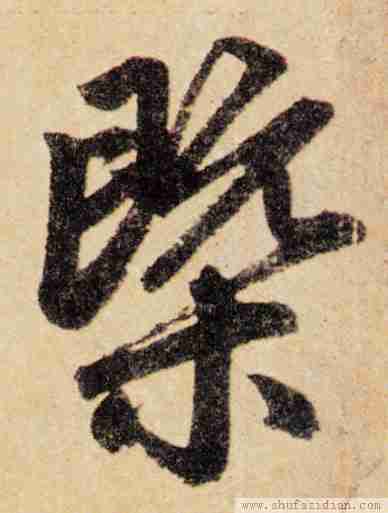 槩
www.shufazidian.com